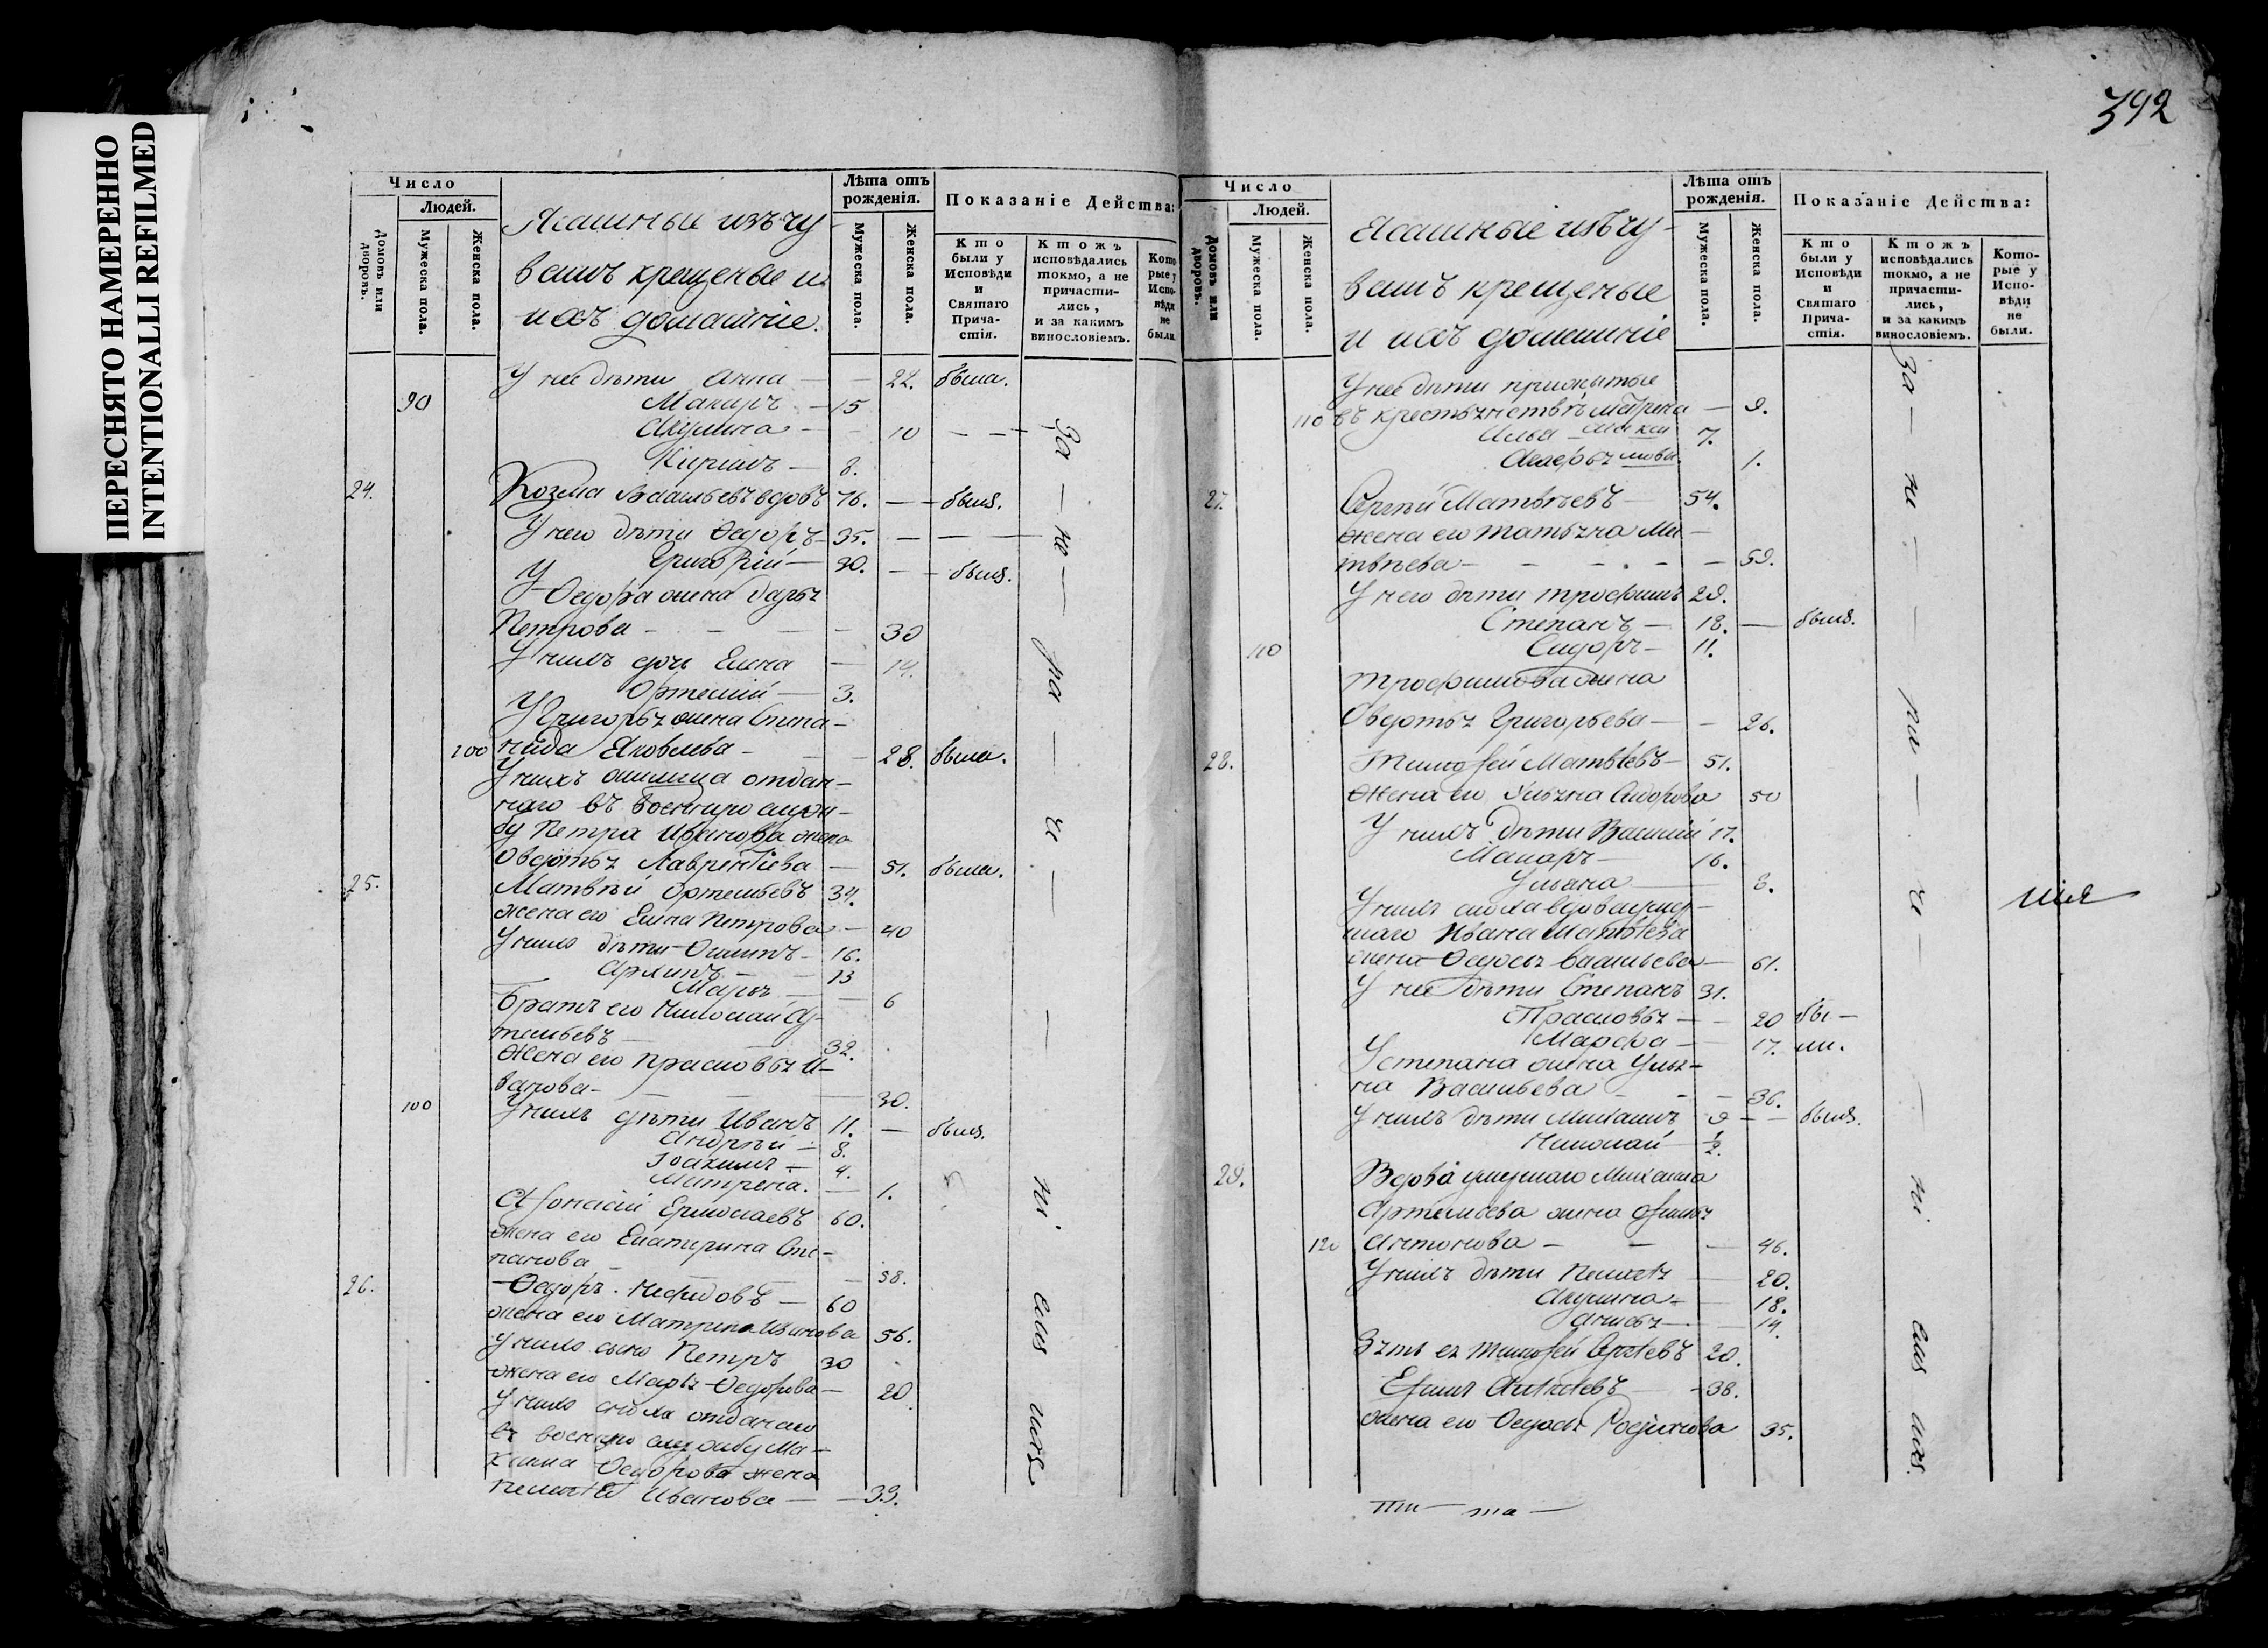 ПЕРЕСНЯТО НАМЕРЕННО
INTENTIONALLI REFILMED
392
Число
Людей.
Домовъ или дворовъ.
Мужеска пола.
Женска пола.
Ясашные изъ чу-
вашъ крещеные и
ихъ домашніе.
Лѣта отъ рожденія.
Мужеска пола.
Женска пола.
Показаніе Действа:
Кто были у Исповѣди и Святаго Причастія.
Ктожъ исповѣдались токмо, а не причастились, и за какимъ винословіемъ.
Которые у Исповѣди не были.
У нее дѣти Анна — 22. была.
90 Макаръ — 15
Акулина — 10
Кирилъ — 8.
24. Козма Васильевъ вдовъ 76. — были.
У него дѣти Ѳедоръ 35.
Григорій — 30. — были.
У Ѳедора жена Дарья
Петрова — 30
У нихъ дочи Елена — 14.
Ортемій — 3.
У Григорья жена Степа-
100 нида Яковлева — 28. была.
У нихъ отдан-
наго въ военную служ-
бу Петра Иванова жена
Овдотья Лаврентіева — 51. была.
25. Матвѣй Ортемьевъ 34.
жена его Елена Петрова — 40
У нихъ дѣти Осипъ — 16.
Архипъ — 13
Марья — 6
Братъ его Николай Ар-
темьевъ 32.
Жена его Прасковья И-
ванова — 30.
100 У нихъ дѣти Иванъ 11. — были.
Андрѣй — 8.
Іоакимъ — 4.
Матрена. — 1.
Афонасій Ермолаевъ 60.
жена его Екатерина Сте-
панова — 58.
26. Ѳедоръ Нефидовъ — 60
жена его Матрена Иванова 56.
У нихъ сынъ Петръ 30
жена его Марья Ѳедорова — 20.
У нихъ сноха отданаго
въ военную службу Ма-
ксима Ѳедорова жена
Пелагея Иванова — 33.
За — не — ра — че — ні — емъ ихъ
Число
Людей.
Домовъ или дворовъ.
Мужеска пола.
Женска пола.
Ясашные изъ чу-
вашъ крещеные
и ихъ домашніе
Лѣта отъ рожденія.
Мужеска пола.
Женска пола.
Показаніе Действа:
Кто были у Исповѣди и Святаго Причастія.
Ктожъ исповѣдались токмо, а не причастились, и за какимъ винословіемъ.
Которые у Исповѣди не были.
У нее дѣти прижитые
110 въ крестьянствѣ Матрена — 9.
Илья Макси 7.
мовы. 1.
27. Сергѣй Матвѣевъ — 54.
жена его Татьяна Ма-
твѣева — 59.
У него дѣти Трофимъ 29.
Степанъ — 18. — были.
110 Сидоръ — 11.
Трофимова жена
Овдотья Григорьева — 26.
28. Тимофей Матвѣевъ — 51.
жена его Ульяна Сидорова 50
У нихъ дѣти Василій 17.
Макаръ — 16.
Ульяна 8.
У нихъ сноха вдова умер-
шаго Ивана Матвѣева
жена Ѳедосья Васильева — 61.
У нее дѣти Степанъ 31.
Прасковья — 20 бы-
Марфа — 17. ли.
У Степана жена Улья-
на Васильева — 36.
У нихъ дѣти Михаилъ 9 — были.
Николай ½.
29. Вдова умершаго Михаила
Артемьева жена
120 Антонова — 46.
У нихъ дѣти Пелагея 20.
Акулина — 18.
Анисья — 14.
Зять ея Тимофей Сергѣевъ 20.
Ефимъ — 38.
жена его Ѳедосья Родионова 35.
За — не — ра — че — ні — емъ ихъ